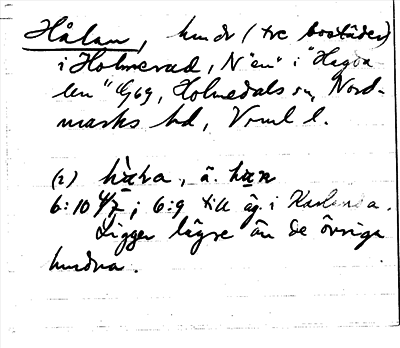 Hålan, hmdr (tre bostäder)
i Holmerud, N "en" i "Hagda
len" G69, Holmedals sn, Nord-
marks hd, Vrml l.
(2) hàɷa, â. hɷn
6:10 4/7; 6:9 till äg. i Karlerea.
Ligger lägre än de övriga
hmdna.